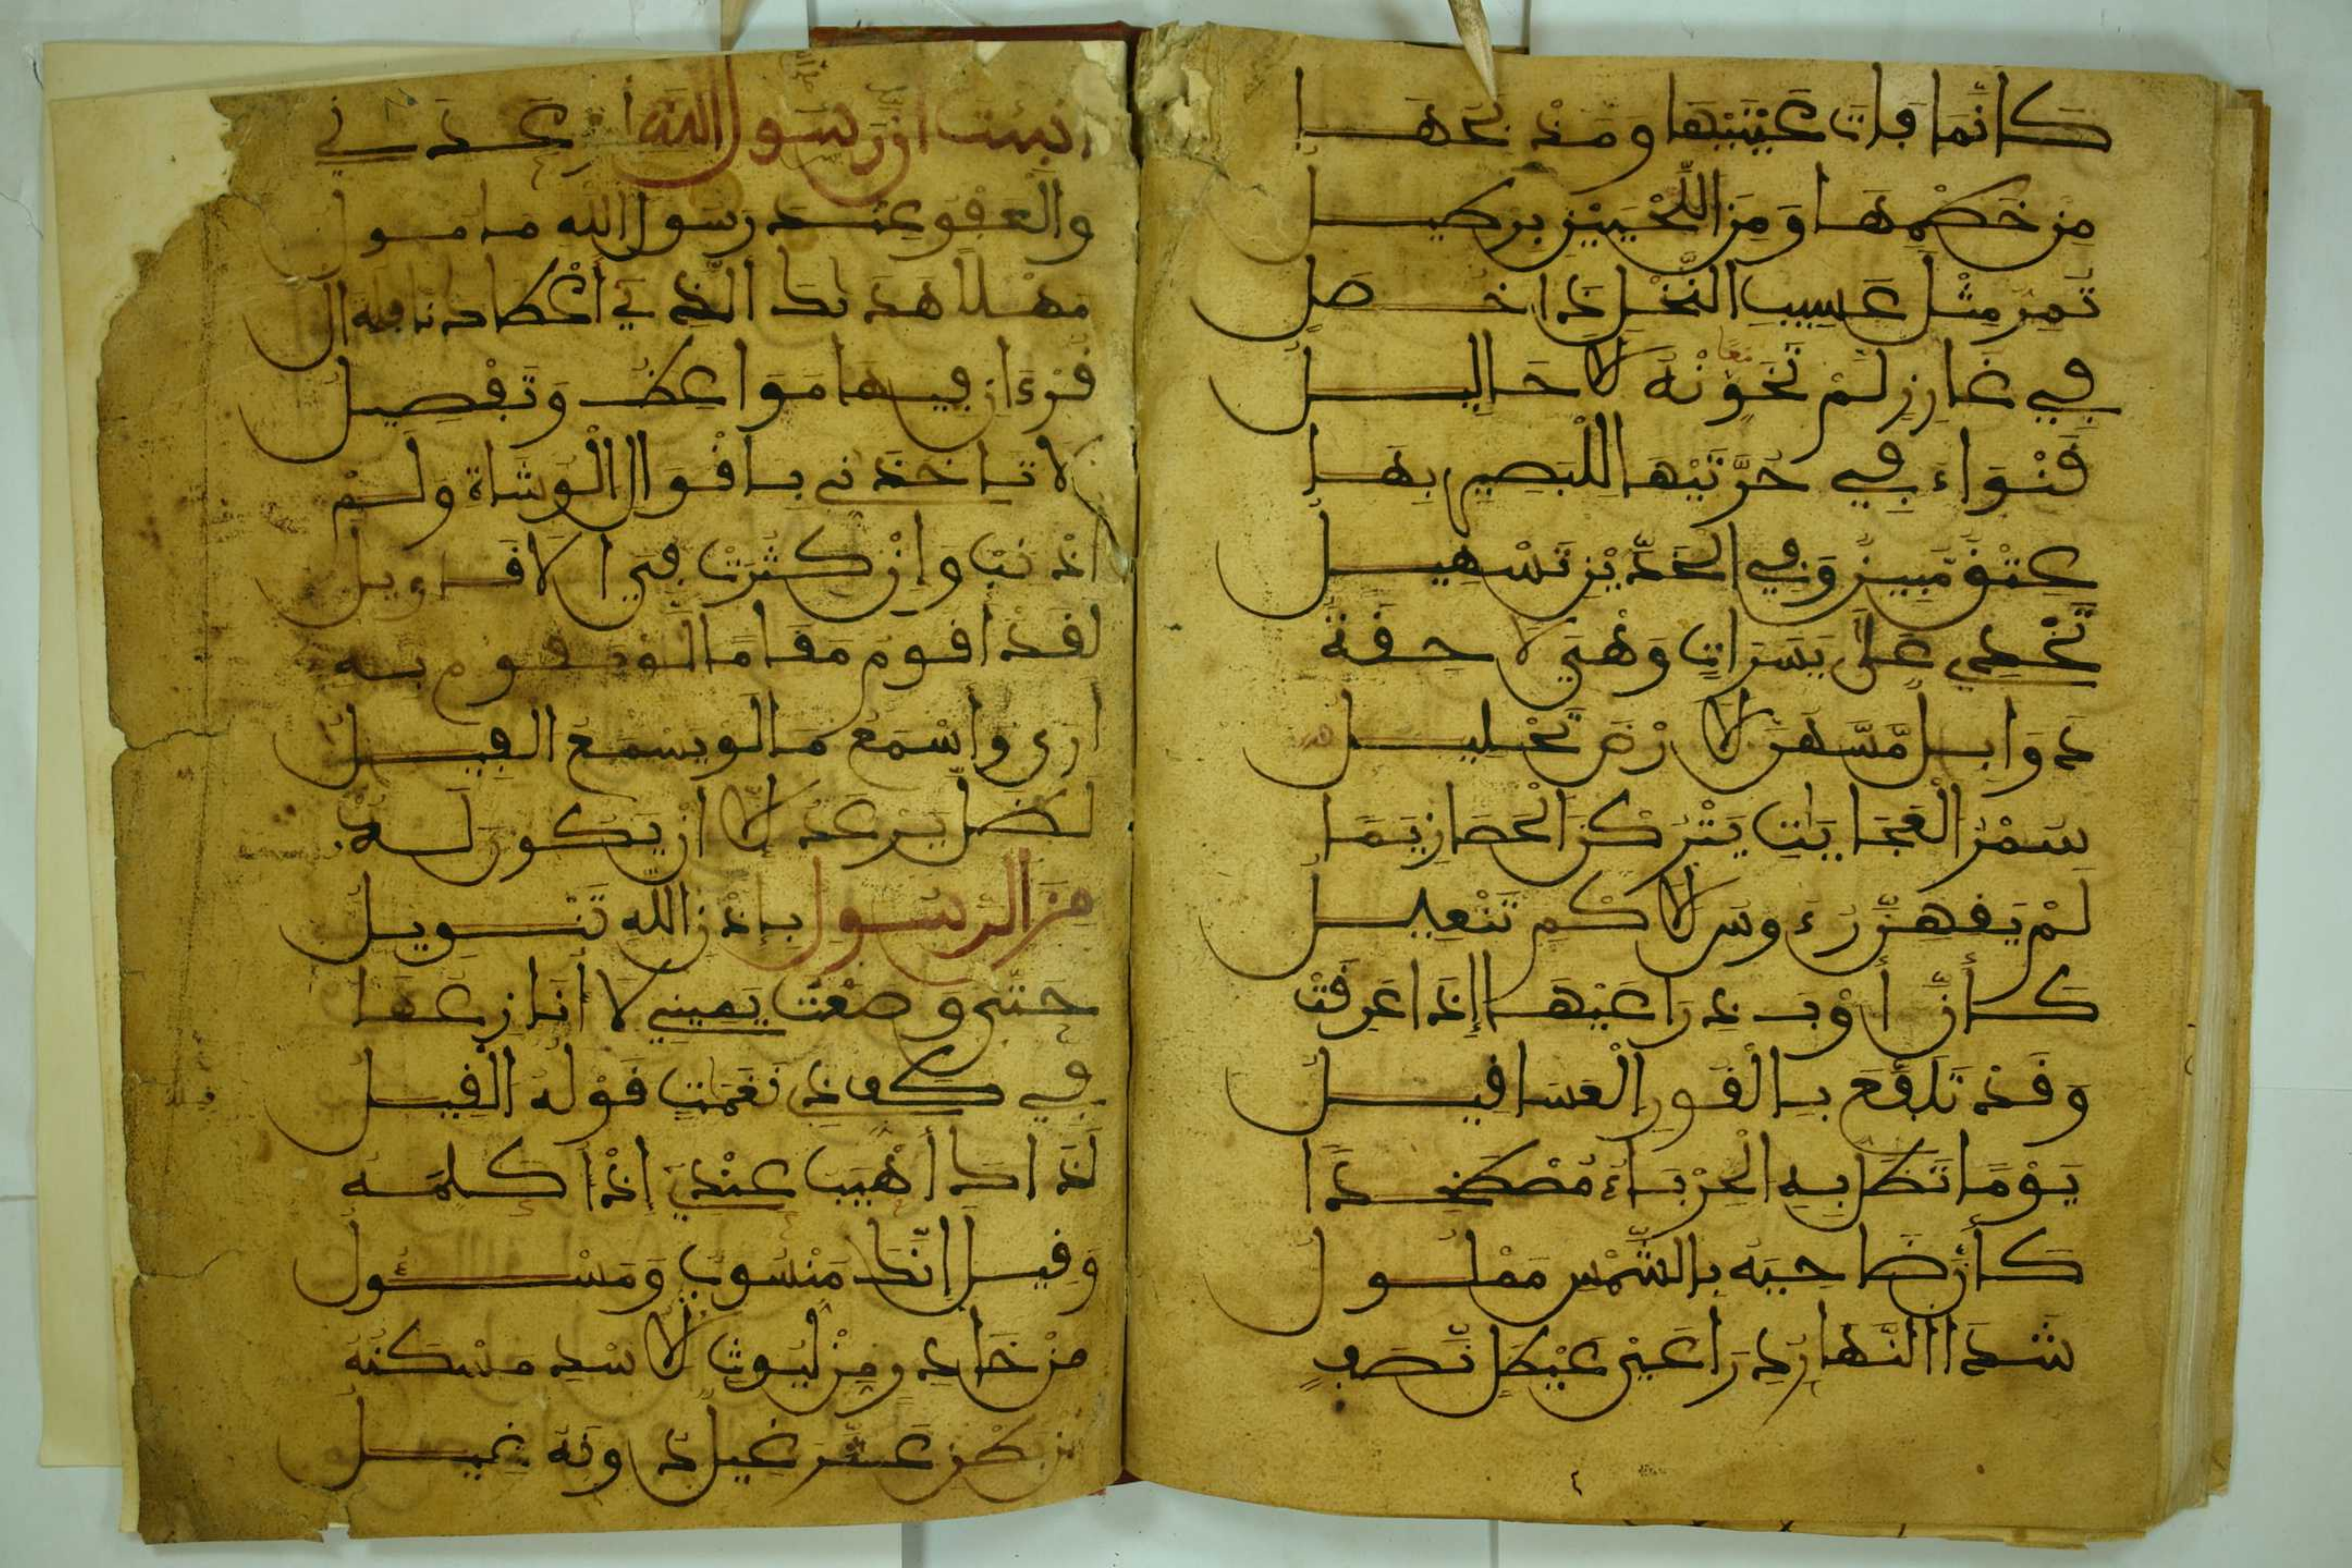 كَأَنَّمَا فَاتَ عَيْنَيْهَا وَمَذْبَحَهَا
مِنْ خَطْمِهَا وَمِنَ اللَّحْيَيْنِ بِرْطِيلُ
تَمِرُّ مِثْلَ عَسِيبِ النَّخْلِ ذَا خُصَلٍ
فِي غَارِزٍ لَمْ تَخَوَّنْهُ الاحَالِيلُ
قَنْوَاءُ فِي حُرَّتَيْهَا لِلْبَصِيرِ بِهَا
عِتْقٌ مُّبِينٌ وَفِي الْخَدَّيْنِ تَسْهِيلُ
تَخْدِي عَلَى يَسَرَاتٍ وَهْيَ لاحِقَةٌ
ذَوَابِلٌ مَّسُّهُنَّ الارْضَ تَحْلِيلُ
سُمْرُ الْعُجَايَاتِ يَتْرُكْنَ الْحَصَا زِيَمًا
لَمْ يَقِهِنَّ رُءُوسَ الاكْمِ تَنْعِيلُ
كَأَنَّ أَوْبَ ذِرَاعَيْهَا إِذَا عَرِقَتْ
وَقَدْ تَلَفَّعَ بِالْقُورِ الْعَسَاقِيلُ
يَوْمًا تَظَلُّ بِهِ الْحِرْبَاءُ مُصْطَخِدًا
كَأَنَّ ضَاحِيَهُ بِالشَّمْسِ مَمْلُولُ
شَدَّ النَّهَارِ ذِرَاعَيْ عَيْطَلٍ نَّصَفٍ
انبئت ان رسول الله أوعدني
والعفو عند رسول الله مامول
مهلا هداك الذي أعطاك نافلة ال
قرءان فيها مواعظ وتفصيل
لا تاخذني باقوال الوشاة ولم
اذنب وإن كثرت في الاقاويل
لقد اقوم مقاما لو يقوم به
ارى وأسمع ما لو يسمع الفيل
لظل يرعد إلا ان يكون له
من الرسول بإذن الله تنويل
حتى وضعت يميني لا أنازعها
في كف ذي نغمات قوله القيل
لذاك أهيب عندي إذ أكلمه
وقيل إنك منسوب ومسئول
من خادر من ليوث الاسد مسكنه
من بطن عثر غيل دونه غيل